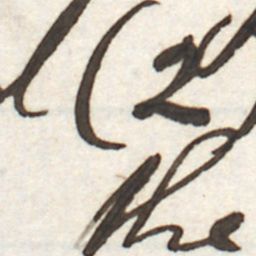 l (2
the